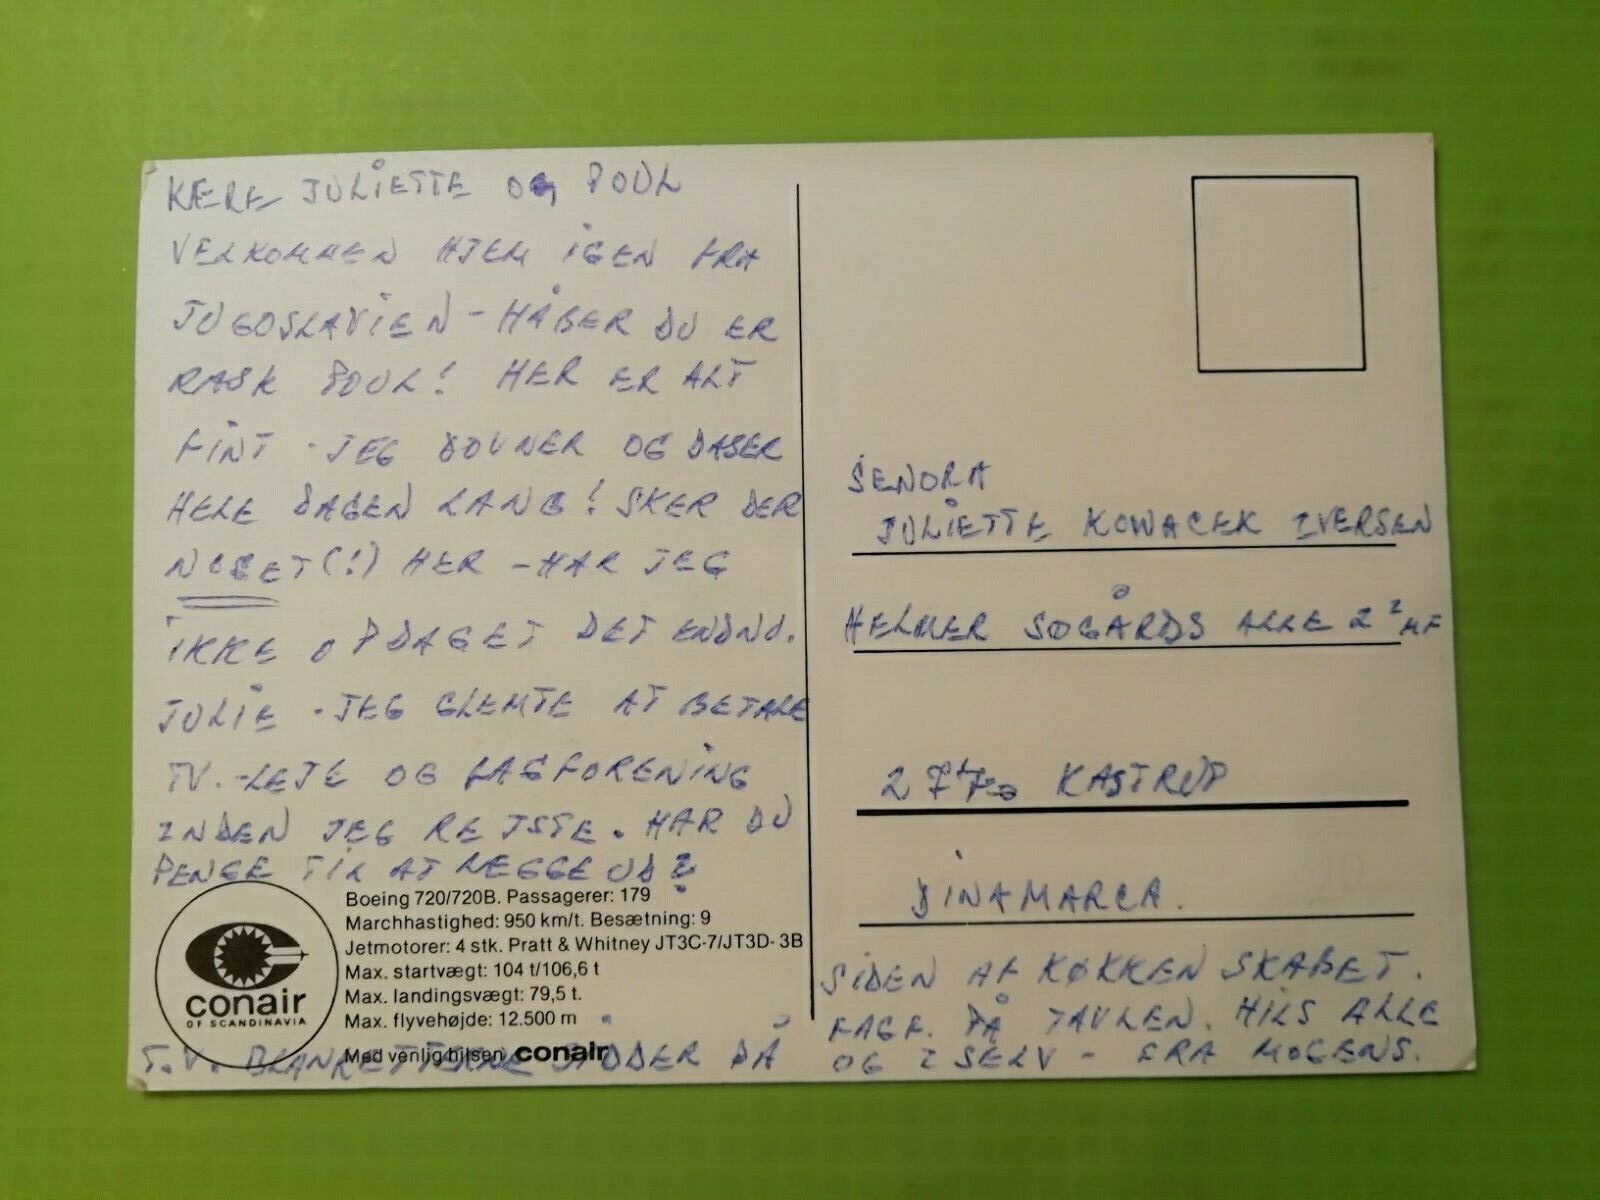 KÆRE JULIETTE OG POUL
VELKOMMEN HJEM IGEN FRA
JUGOSLAVIEN - HÅBER DU ER
RASK POUL! HER ER ALT
FINT - JEG DOVNER OG DASER
HELE DAGEN LANG! SKER DER
NOGET(!) HER - HAR JEG
IKKE OPDAGET DET ENDNU.
JULIE - JEG GLEMTE AT BETALE
TV.-LEJE OG FAGFORENING
INDEN JEG REJSTE. HAR DU
PENGE TIL AT LÆGGE UD?
Boeing 720/720B. Passagerer: 179
Marchhastighed: 950 km/t. Besætning: 9
Jetmotorer: 4 stk. Pratt & Whitney JT3C-7/JT3D-3B
Max. startvægt: 104 t/106,6 t
Max. landingsvægt: 79,5 t.
Max. flyvehøjde: 12.500 m
Med venlig hilsen conair
conair
OF SCANDINAVIA
T.V. BLANKETTERNE SIDDER PÅ
SIDEN AF KØKKEN SKABET.
FAGF. PÅ TAVLEN. HILS ALLE
OG I SELV - FRA MOGENS.
SENORA
JULIETTE KOWACEK IVERSEN
HELMER SØGÅRDS ALLE 2 2 MF
2770 KASTRUP
DINAMARCA.